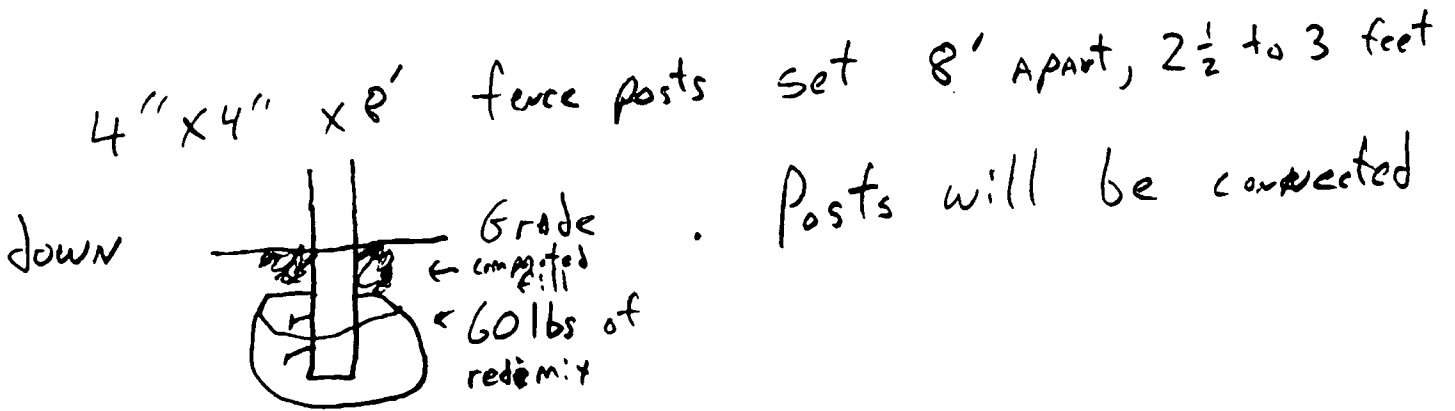 4"x4" x 8' fence posts set 8' apart, 2 1/2 to 3 feet
down . Posts will be connected
Grade
← compacted
fill
← 60 lbs of
redimix